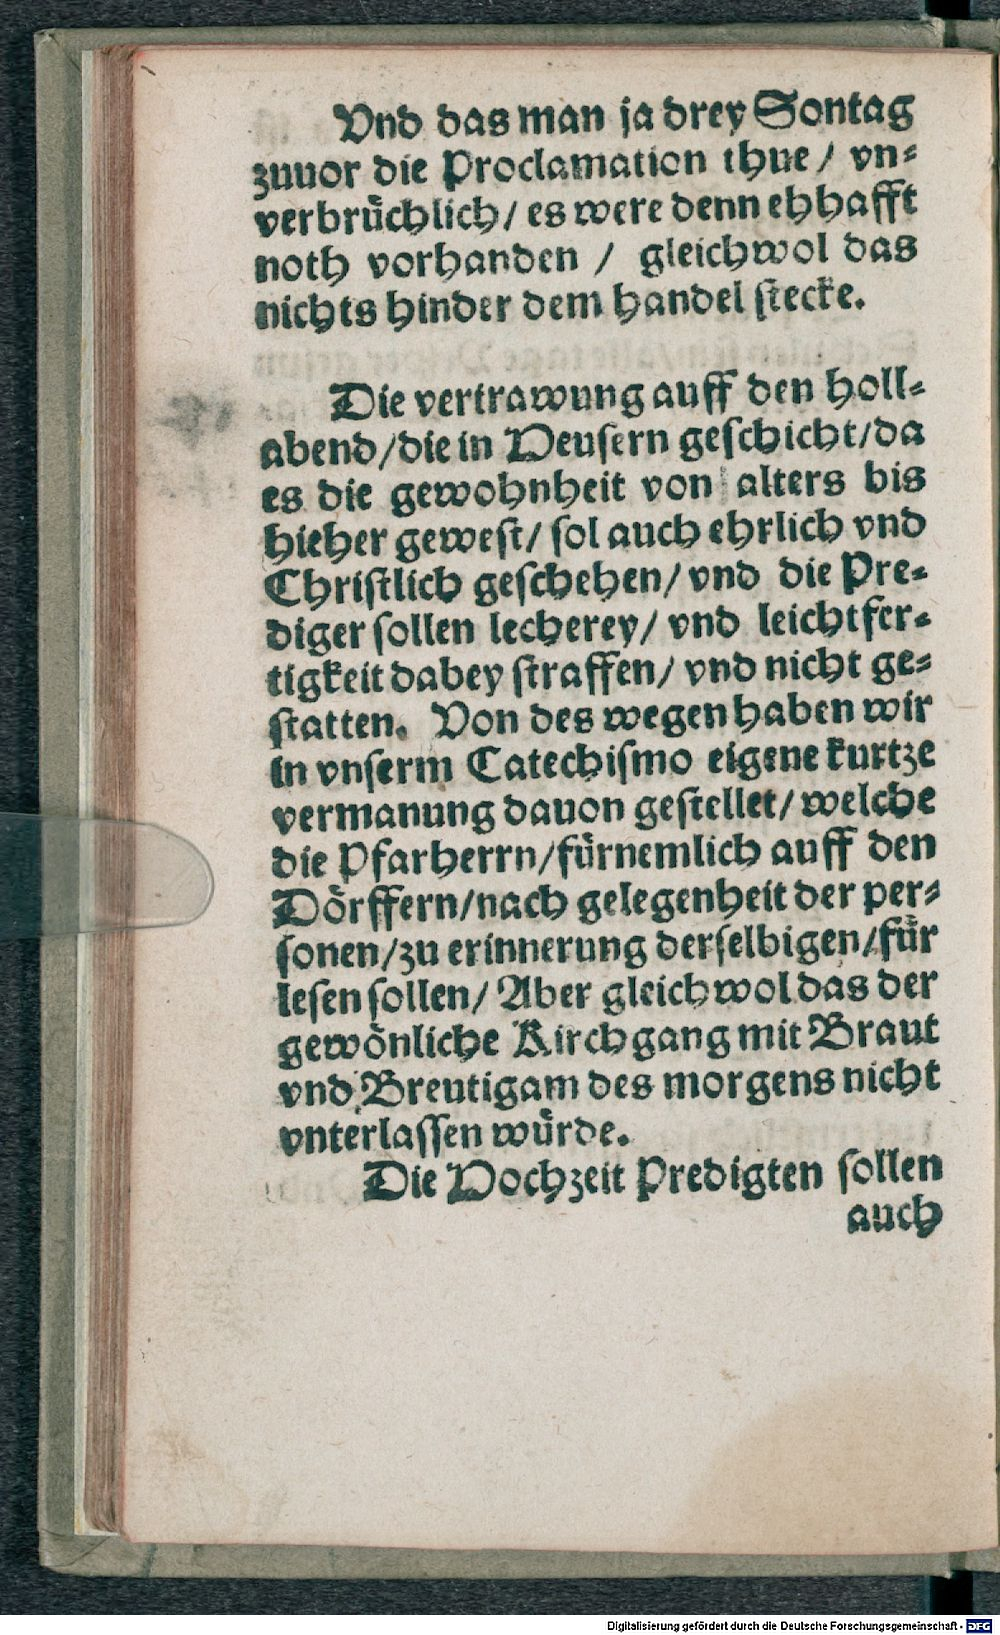 Vnd das man ja drey Sontag
zuuor die Proclamation thue / vn⸗
verbrüchlich / es were denn ehhafft
noth vorhanden / gleichwol das
nichts hinder dem handel stecke.
Die vertrawung auff den Holl⸗
abend / die in Heusern geschicht / da
es die gewohnheit von alters bis
hieher gewest / sol auch ehrlich vnd
Christlich geschehen / vnd die Pre⸗
diger sollen lecherey / vnd leichtfer⸗
tigkeit dabey straffen / vnd nicht ge⸗
statten. Von des wegen haben wir
in vnserm Catechismo eigene kurtze
vermanung dauon gestellet / welche
die Pfarherrn / fürnemlich auff den
Dörffern / nach gelegenheit der per⸗
sonen / zu erinnerung derselbigen / für
lesen sollen / Aber gleichwol das der
gewönliche Kirchgang mit Braut
vnd Breutigam des morgens nicht
vnterlassen würde.
Die Hochzeit Predigten sollen
auch
Digitalisierung gefördert durch die Deutsche Forschungsgemeinschaft - DFG